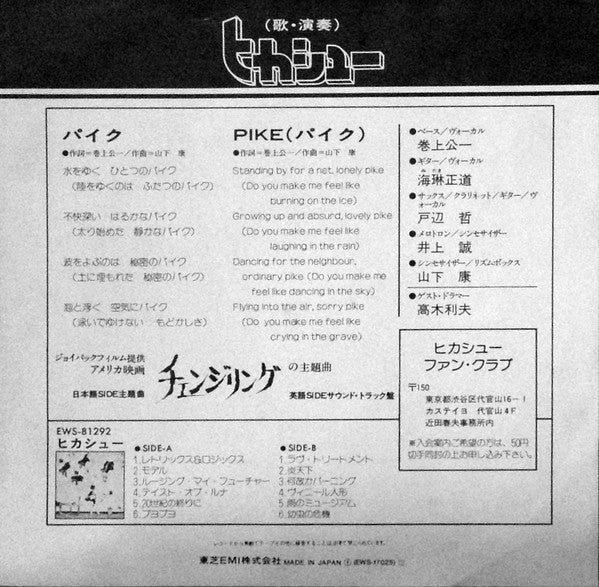 (歌・演奏)
ヒカシュー
パイク
●作詞=巻上公一/作曲=山下 康
水をゆく ひとつのパイク
(陸をゆくのは ふたつのパイク)
不快深い はるかなパイク
(太り始めた 静かなパイク)
波をよぶのは 秘密のパイク
(土に埋もれた 秘密のパイク)
悠と浮く 空気にパイク
(泳いでゆけない もどかしさ)
PIKE(パイク)
●作詞=巻上公一/作曲=山下 康
Standing by for a net, lonely pike
(Do you make me feel like
burning on the ice)
Growing up and absurd, lovely pike
(Do you make me feel like
laughing in the rain)
Dancing for the neighbour,
ordinary pike (Do you make me
feel like dancing in the sky)
Flying into the air, sorry pike
(Do you make me feel like
crying in the grave)
●ベース/ヴォーカル
巻上公一
●ギター/ヴォーカル
海琳正道
●サックス/クラリネット/ギター/ヴォーカル
戸辺 哲
●メロトロン/シンセサイザー
井上 誠
●シンセサイザー/リズムボックス
山下 康
●ゲスト・ドラマー
高木利夫
ジョイパックフィルム提供
アメリカ映画
チェンジリング
の主題曲
日本語SIDE主題曲
英語SIDEサウンド・トラック盤
ヒカシュー
ファン・クラブ
〒150
東京都渋谷区代官山16−1
カステイヨ 代官山4F
近田春夫事務所内
※入会案内ご希望の方は、50円
切手同封の上お申し込み下さい。
EWS-81292
ヒカシュー
●SIDE-A
1.レトリックス&ロジックス
2.モデル
3.ルージング・マイ・フューチャー
4.テイスト・オブ・ルナ
5.20世紀の終りに
6.プヨプヨ
●SIDE-B
1.ラヴ・トリートメント
2.炎天下
3.何故かバーニング
4.ヴィニール人形
5.雨のミュージアム
6.幼虫の危機
レコードから無断でテープその他に録音することは法律で禁じられています。
東芝EMI株式会社 MADE IN JAPAN (EWS-17025)